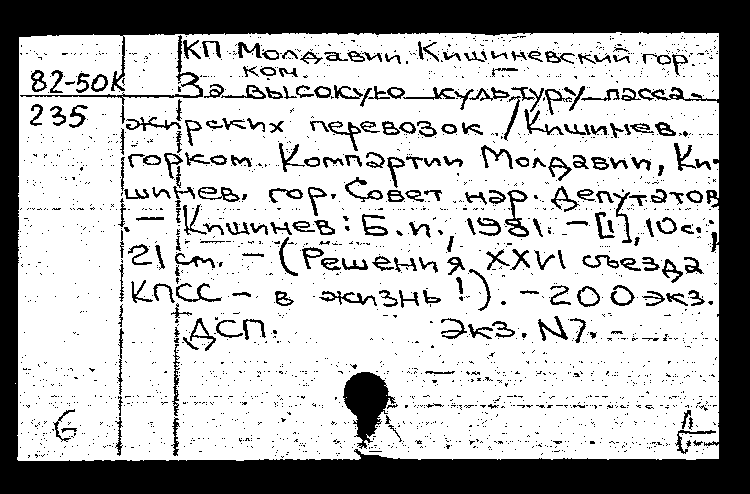 КП Молдавии. Кишиневский гор
ком.
82-50К За высокую культуру пасса-
235 жирских перевозок / Кишинев.
горком Компартии Молдавии, Ки-
шинев. гор. Совет нар. депутатов
. — Кишинев: Б.и., 1981. — [1], 10 с.;
21 см. — (Решения XXVI съезда
КПСС — в жизнь!). — 200 экз.
ДСП. Экз. N7. -